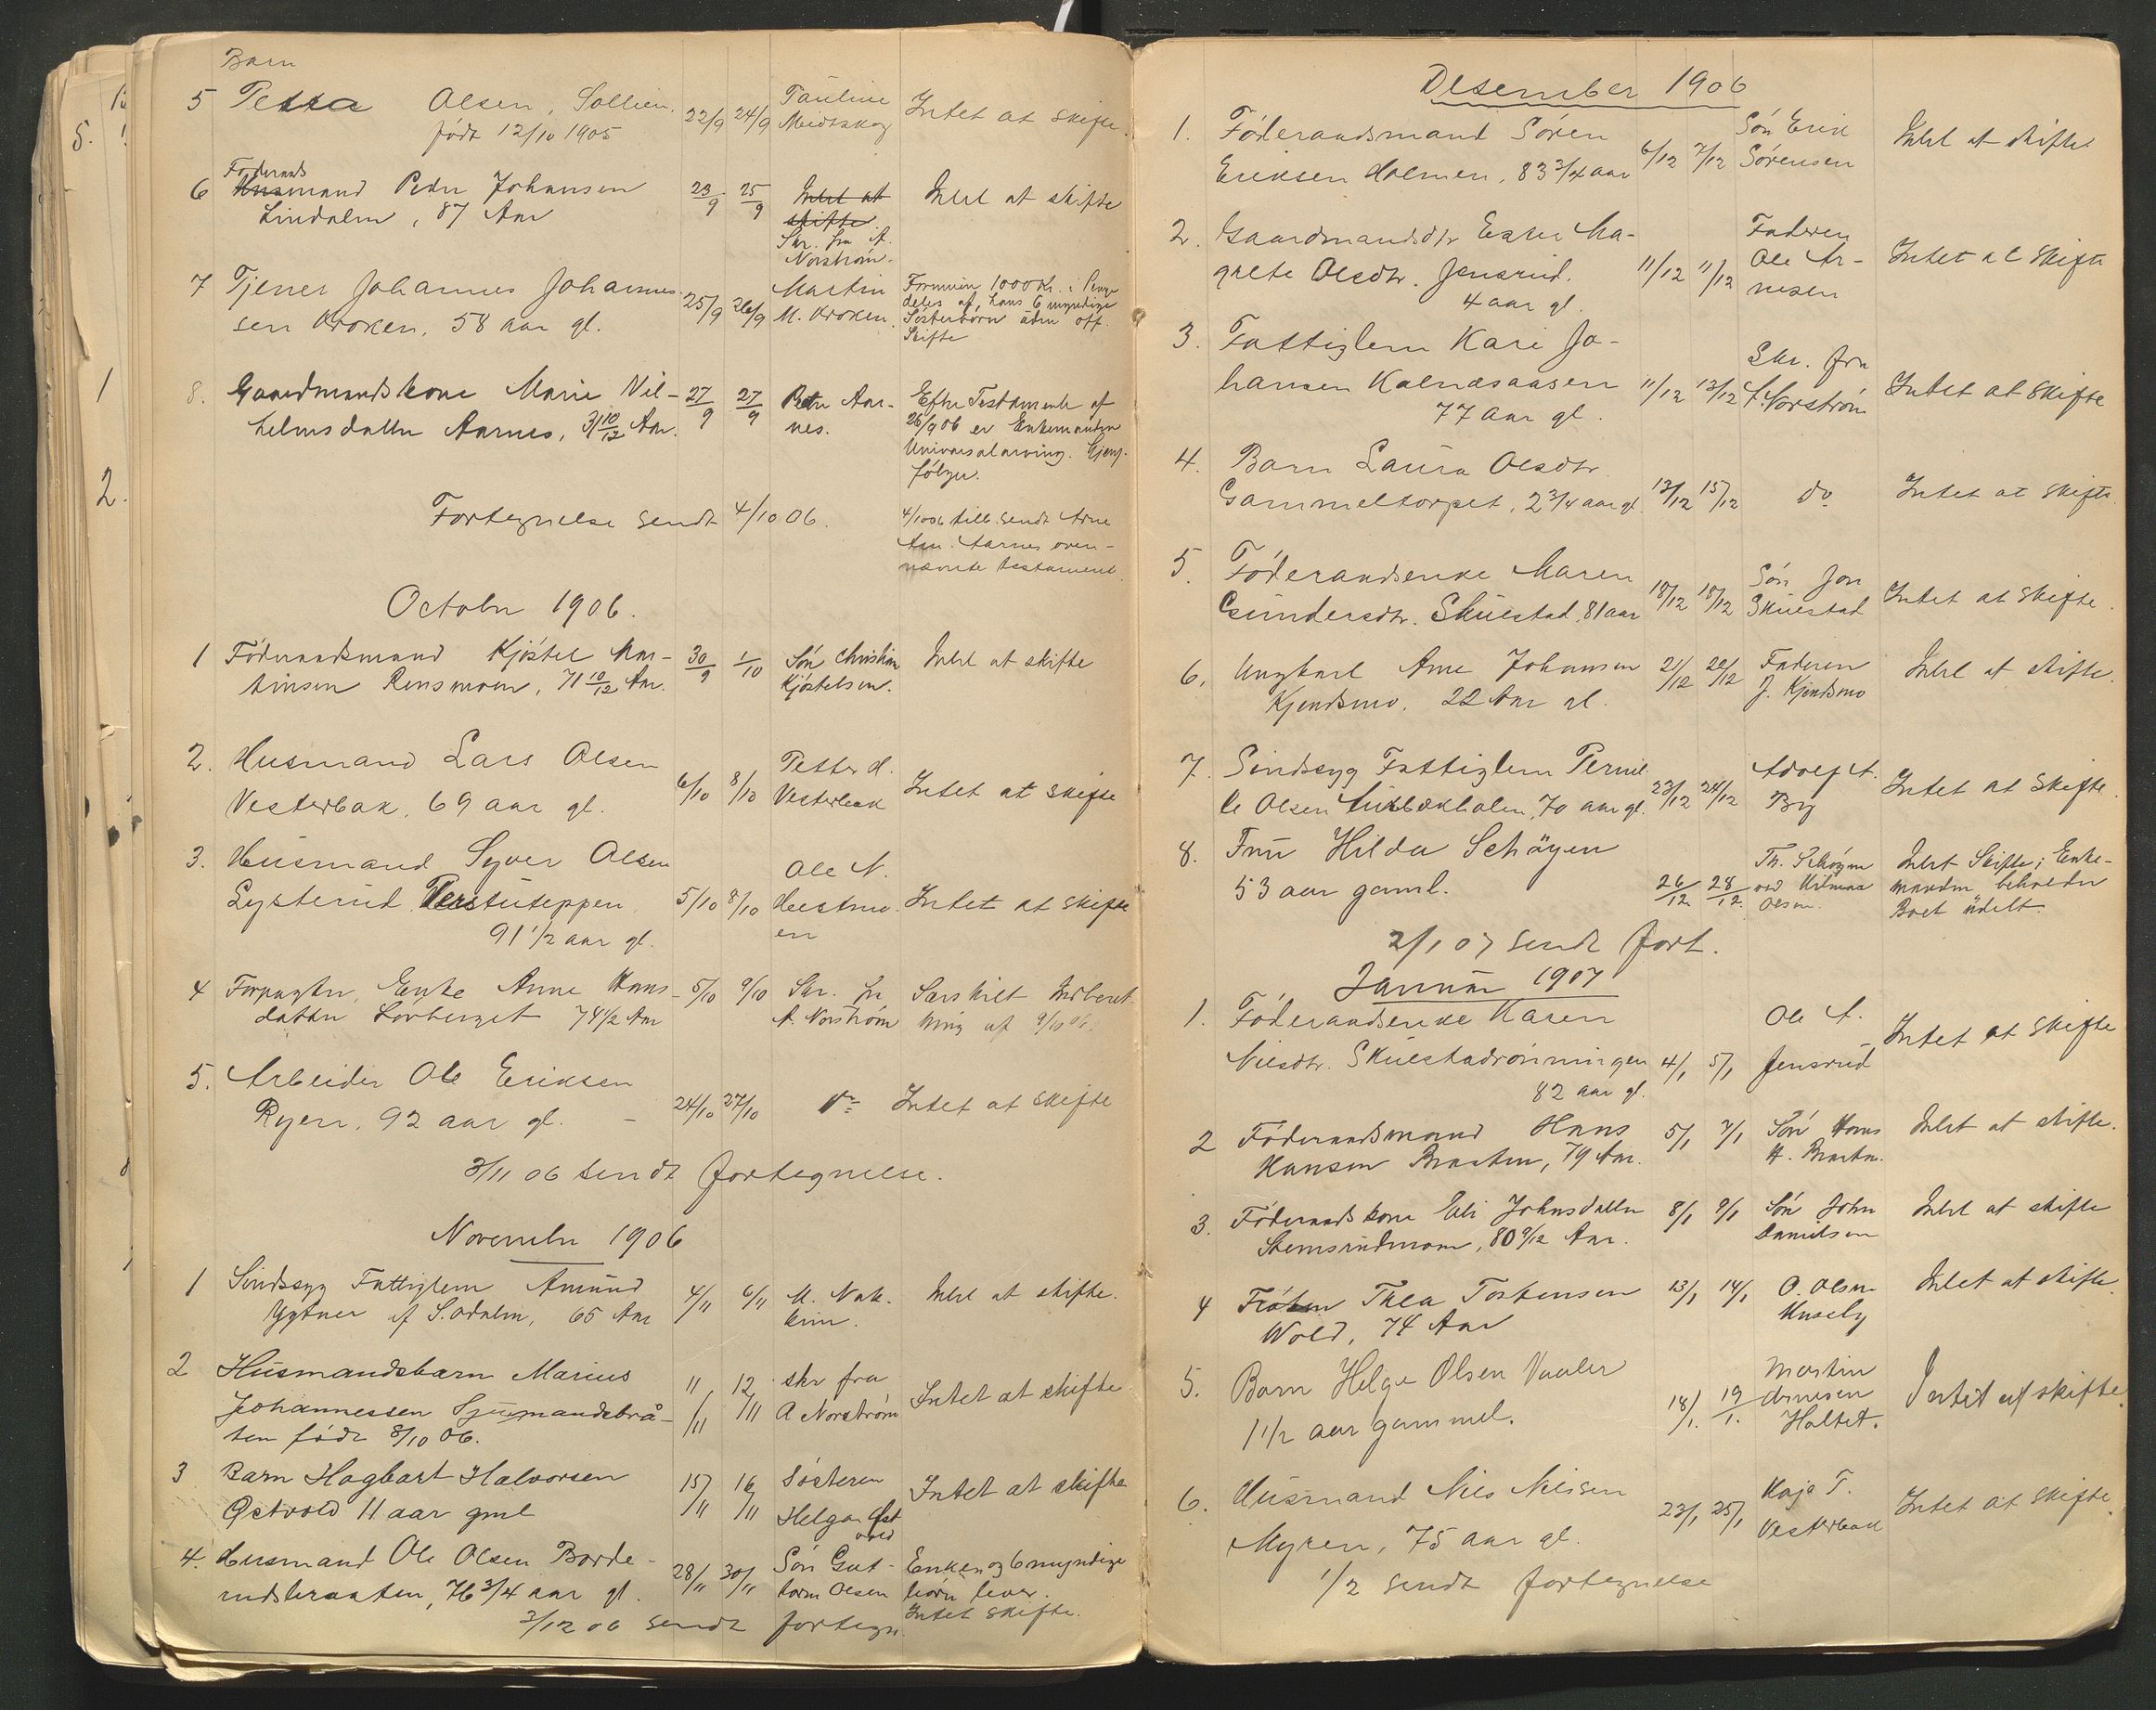 Barn
5 Petra Olsen, Sollien. 22/9 24/9 Pauline Intet at skifte.
født 12/10 1905 Medskog
Føderands
6 Husmand Peder Johansen 23/9 25/9 Intet at Intet at skifte
Lindalen, 87 Aar skifte
Skr. fra A.
Norström.
7 Tjener Johannes Johannes- 25/9 26/9 Martin Formuen 1000 Kr. i Penge
sen Kroken, 58 aar gl. M. Kroken. deles af hans 6 myndige
Søsterbørn uden off.
Skifte
8. Gaardmandskone Marie Vil- 27/9 27/9 Peder Aar- Efter Testamente af
helmsdatter Aarnes, 31 10/12 Aar. nes. 26/9 06 er Enkemanden
Universalarving. Gjenp.
følger.
Fortegnelse sendt 4/10 06. 4/10 06 tilb. sendt Arne
Aarnes oven-
nævnte testament.
October 1906.
1 Føderaadsmand Kjøstel Mar- 30/9 1/10 Søn Christian Intet at skifte
tinsen Rensmoen, 71 10/12 Aar. Kjøstelsen.
2. Husmand Lars Olsen 6/10 8/10 Petter H. Intet at skifte
Vesterbak, 69 aar gl. Vesterbak
3. Husmand Syver Olsen Ole N.
Lysterud 5/10 8/10 Hestmo- Intet at skifte
91 1/2 aar gl. en
4 Forpagter Enke Anne Hans- 5/10 9/10 Skr. fra Særskilt Indberet-
datter Lövberget 74 1/2 Aar A. Norström ning af 9/10 06.
5. Arbeider Ole Eriksen 24/10 27/10 do Intet at skifte
Ryen, 92 aar gl. -
3/11 06 sendt fortegnelse.
November 1906
1 Sindssyg Fattiglem Amund 4/11 6/11 M. Nak- Intet at skifte.
af S. Odalen, 65 Aar kim.
2 Husmandsbarn Marius 11/11 12/11 skr fra Intet at skifte
Johannessen A Norström
ten født 8/10 06.
3 Barn Hagbart Halvorsen 15/11 16/11 Søsteren Intet at skifte
Østvold 11 aar gml Helga Øst
vold
4. Husmand Ole Olsen Borde- 28/11 30/11 Søn Gut- Enken og 6 myndige
rudsbraaten, 76 3/4 aar gl. torm Olsen børn lever.
3/12 06 sendt fortegn. Intet skifte.
Desember 1906
1. Føderaadsmand Søren 6/12 7/12 Søn Erik Intet at skifte
Eriksen Holmen, 83 3/4 aar Sørensen
2. Gaardmandsdtr Ester Ma- Faderen
grete Olsdtr. Jensrud. 11/12 11/12 Ole Ar- Intet at skifte
4 aar gl. nesen
3. Fattiglem Kari Jo- Skr. fra
hansen Kalnæsaasen 11/12 13/12 A. Norström Intet at skifte
77 aar gl.
4. Barn Laura Olsdtr.
Gammeltorpet, 2 3/4 aar gl. 13/12 15/12 do Intet at skifte
5. Føderaadsenke Maren 18/12 18/12 Søn Jon Intet at skifte.
Gundersdtr. Skulstad, 81 aar Skulstad
6. Ungkarl Arne Johansen 21/12 22/12 Faderen Intet at skifte.
Kjendsmo, 22 Aar gl. J. Kjendsmo
7. Sindssyg Fattiglem Pernil- Adolf A. Intet at skifte.
le Olsen 70 aar gl. 23/12 24/12 Bry
8. Fru Hilda Schøyen Th. Schøyen Intet Skifte; Enke-
53 aar gaml. 26/12 28/12. ved Hilmar manden beholder
Olsen. Boet udelt.
2/1 07 sendt fort.
Januar 1907
1. Føderaadsenke Karen Ole A.
Nilsdtr. Skulstadrønningen 4/1 5/1 Jensrud Intet at skifte
82 aar gl.
2 Føderaadsmand Hans 5/1 7/1 Søn Hans Intet at skifte.
Hansen Braaten, 79 Aar. H. Braaten.
3. Føderaadskone Eli Johnsdatter 8/1 9/1 Søn John Intet at skifte
Stemsrudmoen, 80 9/12 Aar. Danielsen
4 Frøken Thea Tostensen 13/1 14/1 O. Olsen Intet at skifte.
Wold, 74 Aar Huseby
5. Barn Helge Olsen Vaaler 18/1. 19/1. Martin Intet at skifte.
1 1/2 aar gammel. Arnesen
Holtet.
6. Husmand Nils Nilsen 23/1 25/1 Kaja T. Intet at skifte.
Myren, 75 aar gl. Vesterbak
1/2 sendt fortegnelse